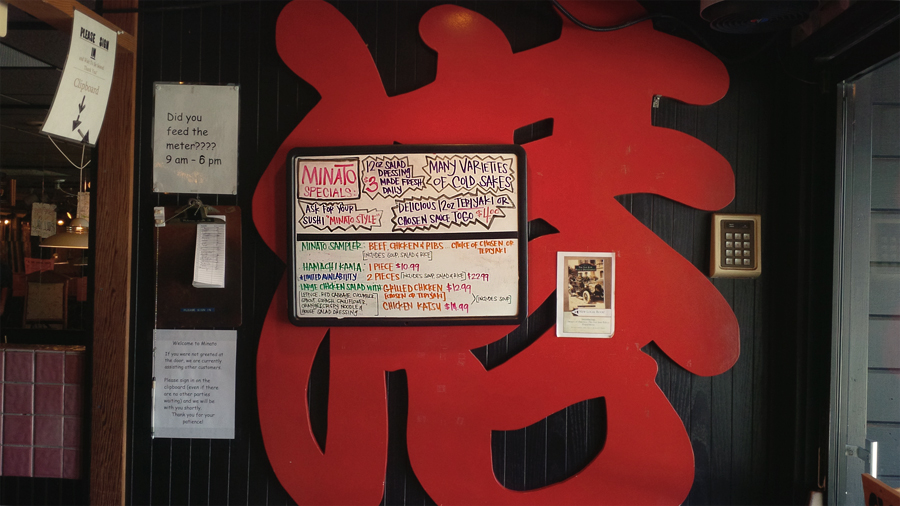 PLEASE SIGN
IN
Clipboard
Did you
feed the
meter????
9 am - 6 pm
Welcome to Minato
If you were not greeted at
the door, we are currently
assisting other customers.
Please sign in on the
clipboard (even if there
are no other parties
waiting) and we will be
with you shortly.
Thank you for your
patience!
MINATO
SPECIALS:
12oz SALAD
DRESSING
$3 MADE FRESH
DAILY
MANY VARIETIES
OF COLD SAKES
ASK FOR YOUR
SUSHI "MINATO STYLE"
DELICIOUS 12oz TEPIYAKI OR
CHOSEN SAUCE TOGO $4.00
MINATO SAMPLER: BEEF, CHICKEN & RIBS CHOICE OF CHOSEN OR
TEPIYAKI
[INCLUDES SOUP, SALAD & RICE]
HAMACHI KAMA: 1 PIECE $10.99
*LIMITED AVAILABILITY 2 PIECES [INCLUDES SOUP, SALAD & RICE] $22.99
LARGE CHICKEN SALAD WITH GRILLED CHICKEN $12.99
[CHOSEN OR TEPIYAKI]
[INCLUDES SOUP]
CHICKEN KATSU $14.99
LETTUCE, RED CABBAGE, CUCUMBER
HOUSE SALAD DRESSING